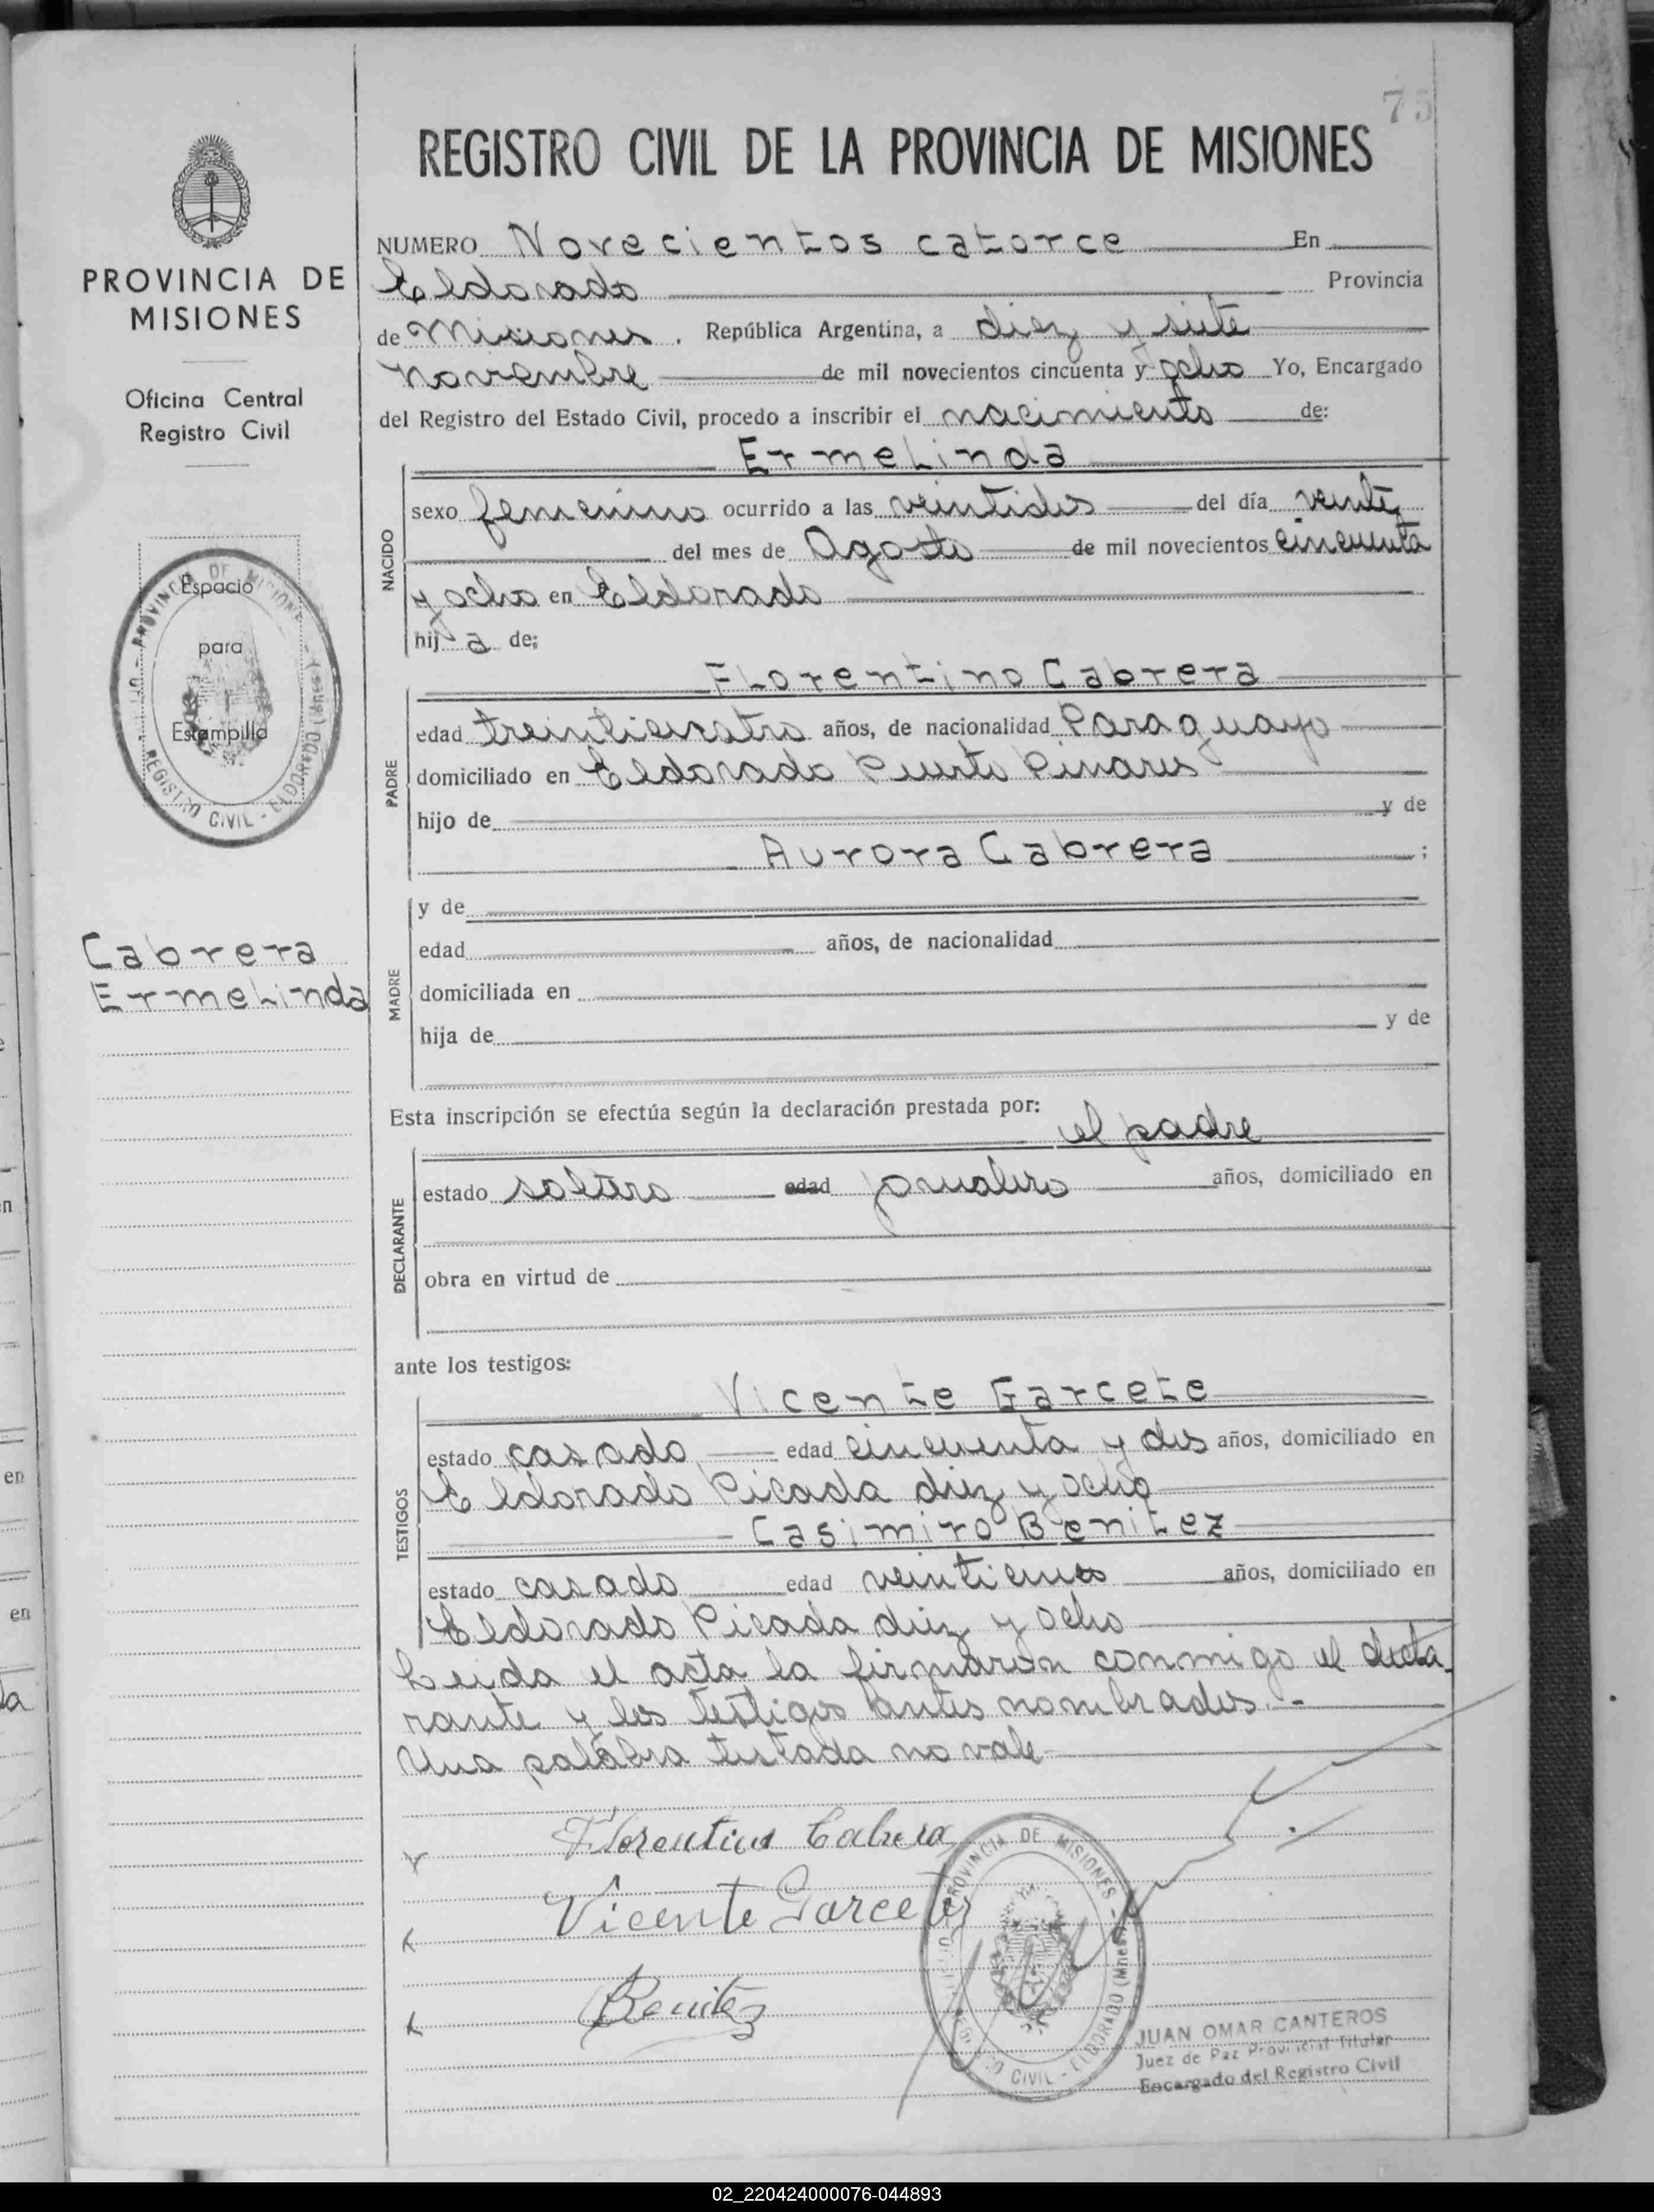 75
REGISTRO CIVIL DE LA PROVINCIA DE MISIONES
PROVINCIA DE
MISIONES
Oficina Central
Registro Civil
Espacio
para
Estampilla
PROVINCIA DE MISIONES
REGISTRO CIVIL - ELDORADO
Cabrera
Ermelinda
NUMERO Novecientos catorce En
Eldorado Provincia
de Misiones . República Argentina, a diez y siete
Noviembre de mil novecientos cincuenta y ocho Yo, Encargado
del Registro del Estado Civil, procedo a inscribir el nacimiento de:
NACIDO
Ermelinda
sexo femenino ocurrido a las veintidos del día veinte
del mes de Agosto de mil novecientos cincuenta
y ocho en Eldorado
hij a de;
PADRE
Florentino Cabrera
edad treinticuatro años, de nacionalidad Paraguayo
domiciliado en Eldorado Puerto Pinares
hijo de y de
Aurora Cabrera ;
MADRE
y de
edad años, de nacionalidad
domiciliada en
hija de y de
Esta inscripción se efectúa según la declaración prestada por:
el padre
DECLARANTE
estado soltero edad jornalero años, domiciliado en
obra en virtud de
ante los testigos:
TESTIGOS
Vicente Garcete
estado casado edad cincuenta y dos años, domiciliado en
Eldorado Picada diez y ocho
Casimiro Benitez
estado casado edad veinticinco años, domiciliado en
Eldorado Picada diez y ocho
Leida el acta la firmaron conmigo el decla
rante y los testigos antes nombrados.-
Una palabra testada no vale
Florentino Cabrera
Vicente Garcete
Benitez
PROVINCIA DE MISIONES
REGISTRO CIVIL - ELDORADO (Mnes)
JUAN OMAR CANTEROS
Juez de Paz Provincial Titular
Encargado del Registro Civil
02_220424000076-044893